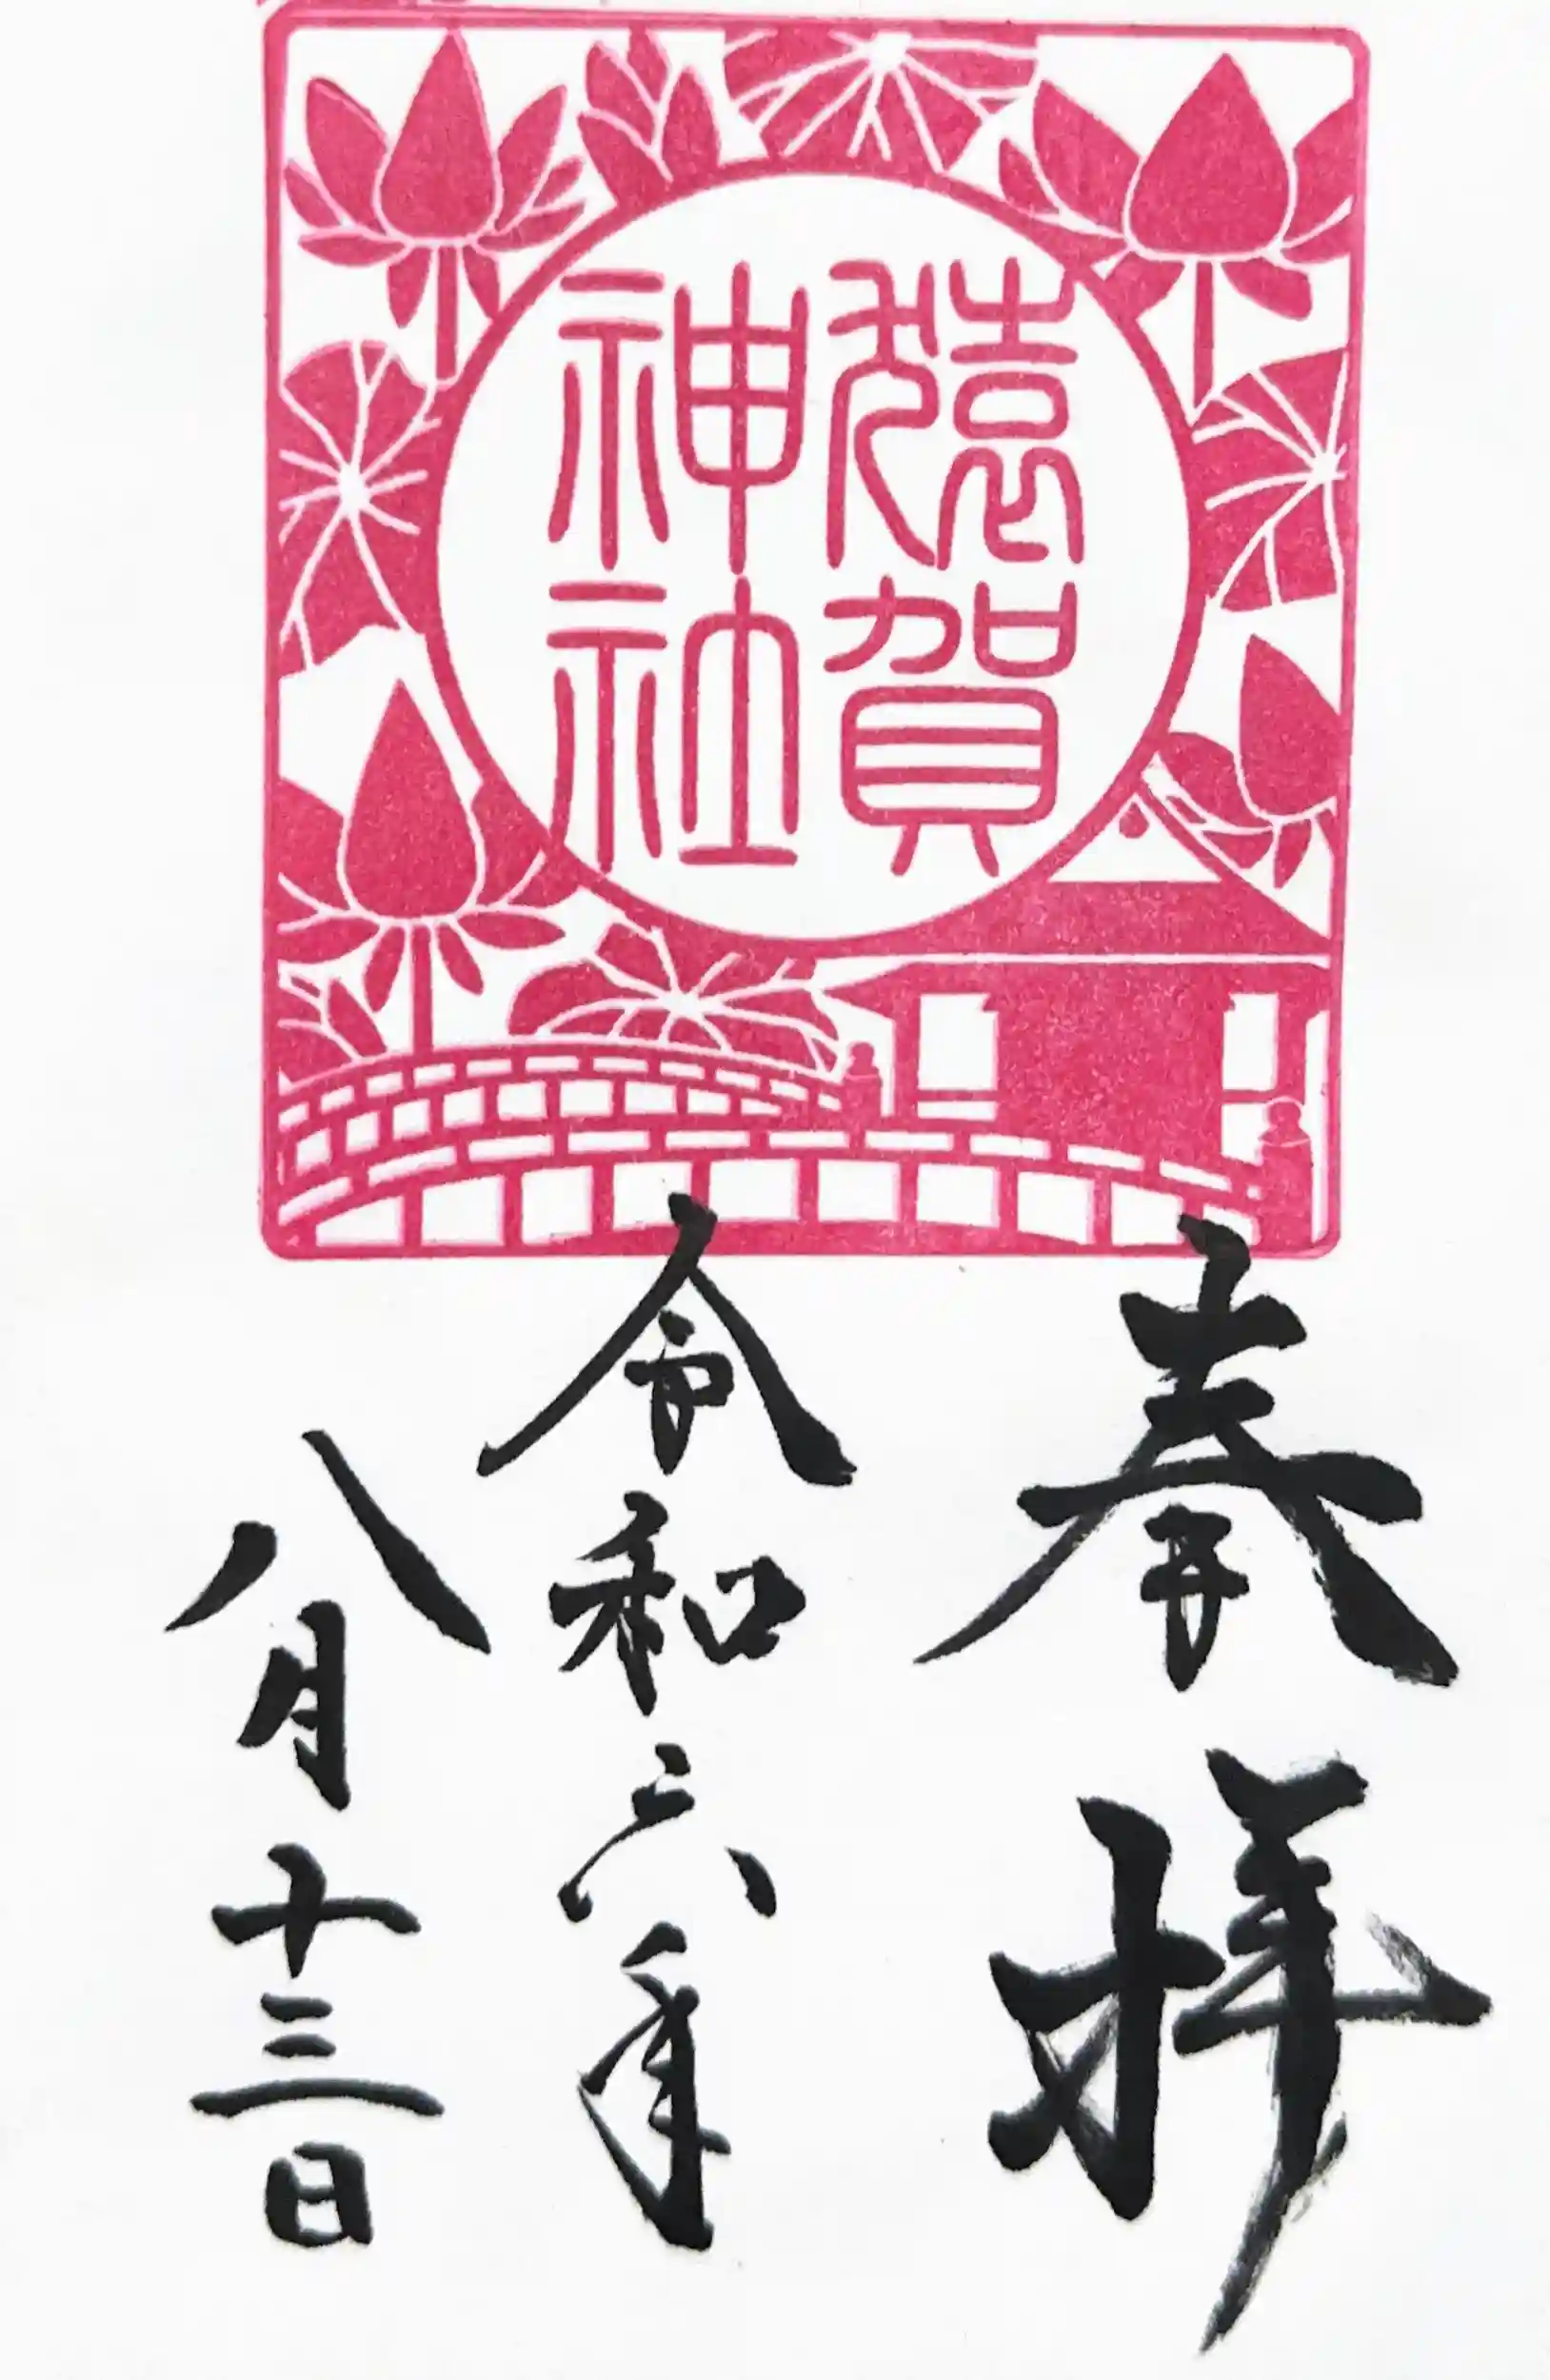 猿賀
神社
奉拝
令和六年
八月十三日